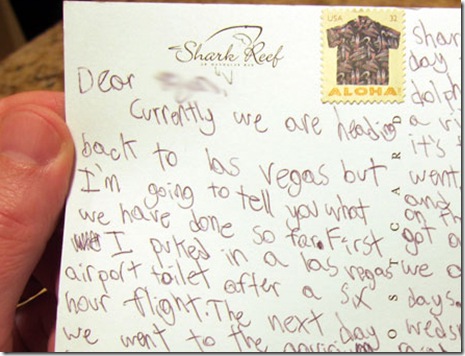 Shark Reef
AT MANDALAY BAY
USA 32
ALOHA!
Dear
Currently we are heading
back to las vegas but
I'm going to tell you what
we have done so far. First
I puked in a las vegas
airport toilet after a six
hour flight. The next day
we went to the
OSTCARD
shar
day
dolph
a ri
it's
went
and
on th
got a
we a
days.
wedn